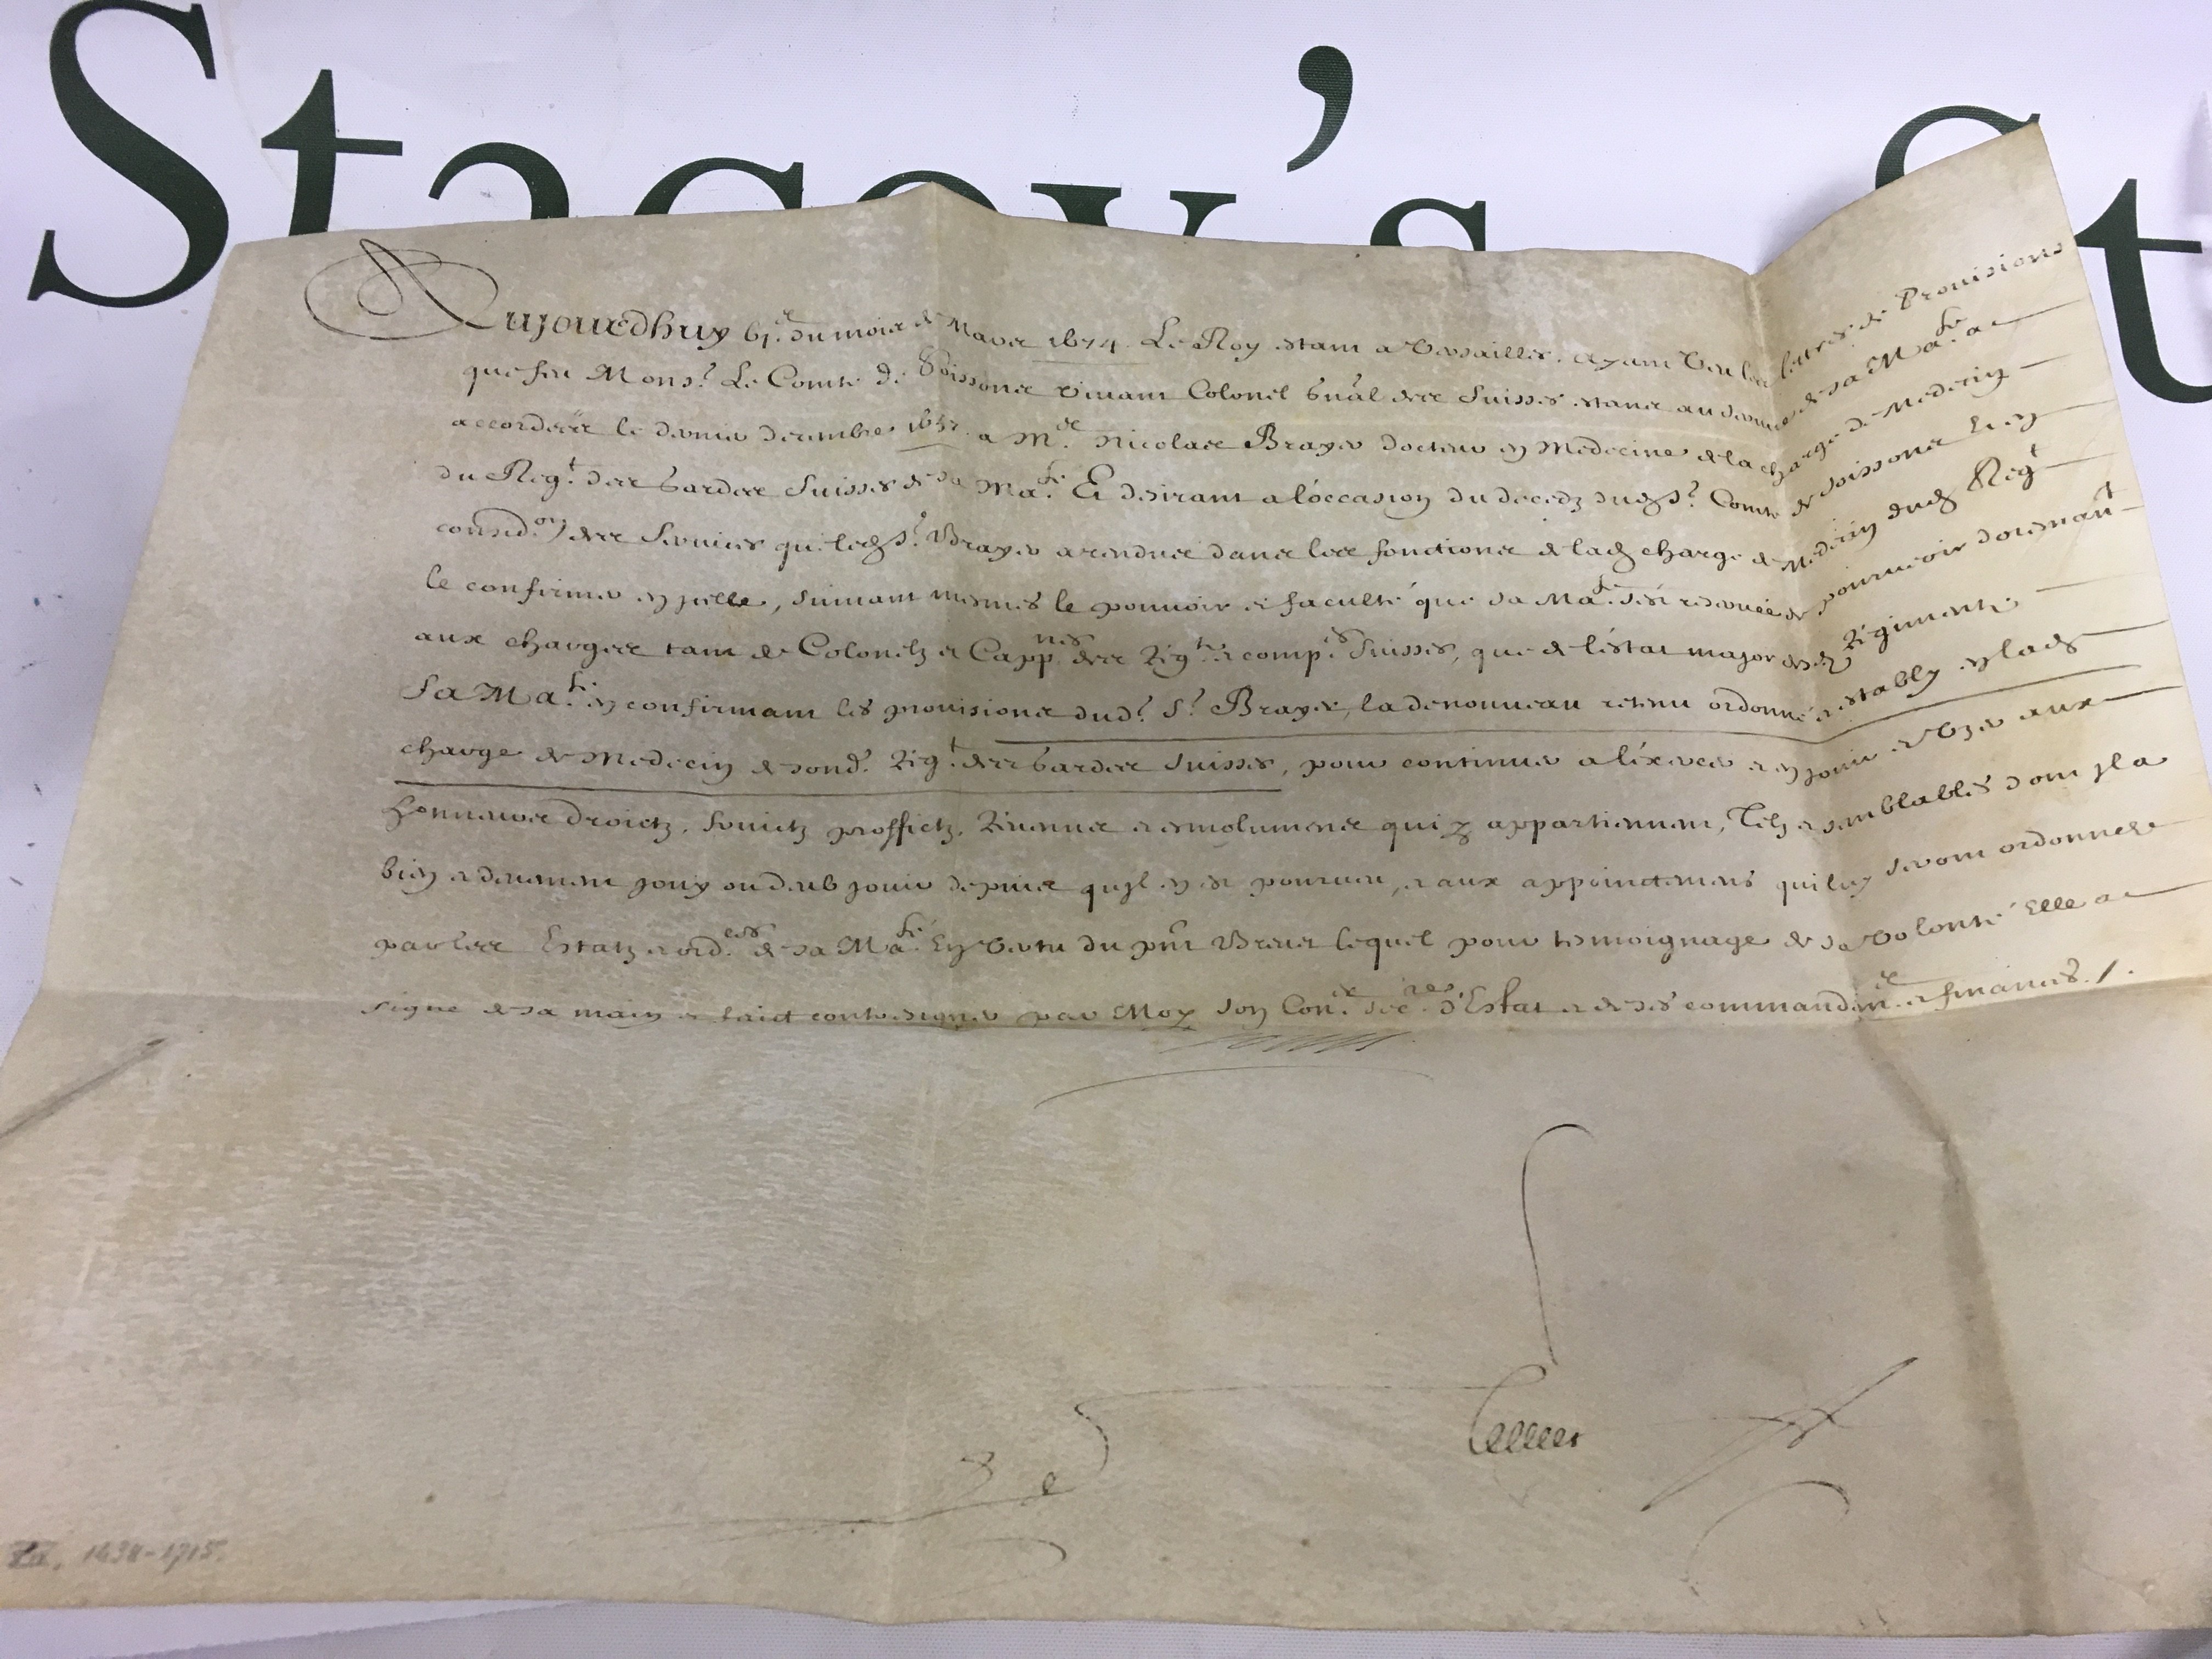 Stacey's St
Aujourdhuy bj.e du mois de Mars 1674. Le Roy estant a Versailles. ayant veu les lettres de Prouisions
que feu Mons.r Le Comte de Soissons viuant Colonel gnâl des Suisses estans au seruice de sa Ma.té a
accordées le dernier decembre 1657. a M.e Nicolas Brayer docteur en Medecine de la charge de Medecin
du Reg.t des gardes Suisses de sa Ma.té Et desirant a l'occasion du decedz dud. S.r Comte de Soissons
consid.on des seruices que led. S.r Brayer a rendus dans les fonctions de lad. charge de Medecin dud. Reg.t
le confirmer en jcelle, suiuant mesmes le pouuoir et faculté que sa Ma.té s'est reseruée de pouruoir doresnauāt
aux charges tant de Colonelz et Capp.nes des Rég.ts et comp.es Suisses, que de l'éstat major desd. Régiments
Sa Ma.té en confirmant les prouisions dud.t S.r Brayer, la de nouueau retenu ordonné et estably en lad.
charge de Medecin de sond.t Rég.t des gardes Suisses, pour continuer a l'éxercer et en jouir et Vzer aux
honneurs droictz, fruictz proffictz, Réuenus et esmolumens qui y appartiennent, Telz et semblables dont jl a
bien et deuement jouy ou deub jouir depuis qu'jl en est pourueu, et aux appointemens qui luy seront ordonnes
par les Estatz et ord.ces de sa Ma.té En Vertu du pñt Breuet lequel pour tesmoignage de sa volonté Elle a
signé de sa main et faict contresigner par Moy son Con.er sec.re d'Estat et de ses commandem.s et finances./.
Louis
Le Tellier
1638-1715.